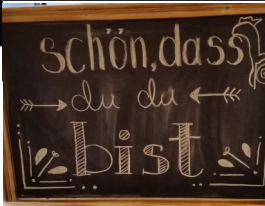 schön, dass
du du
bist